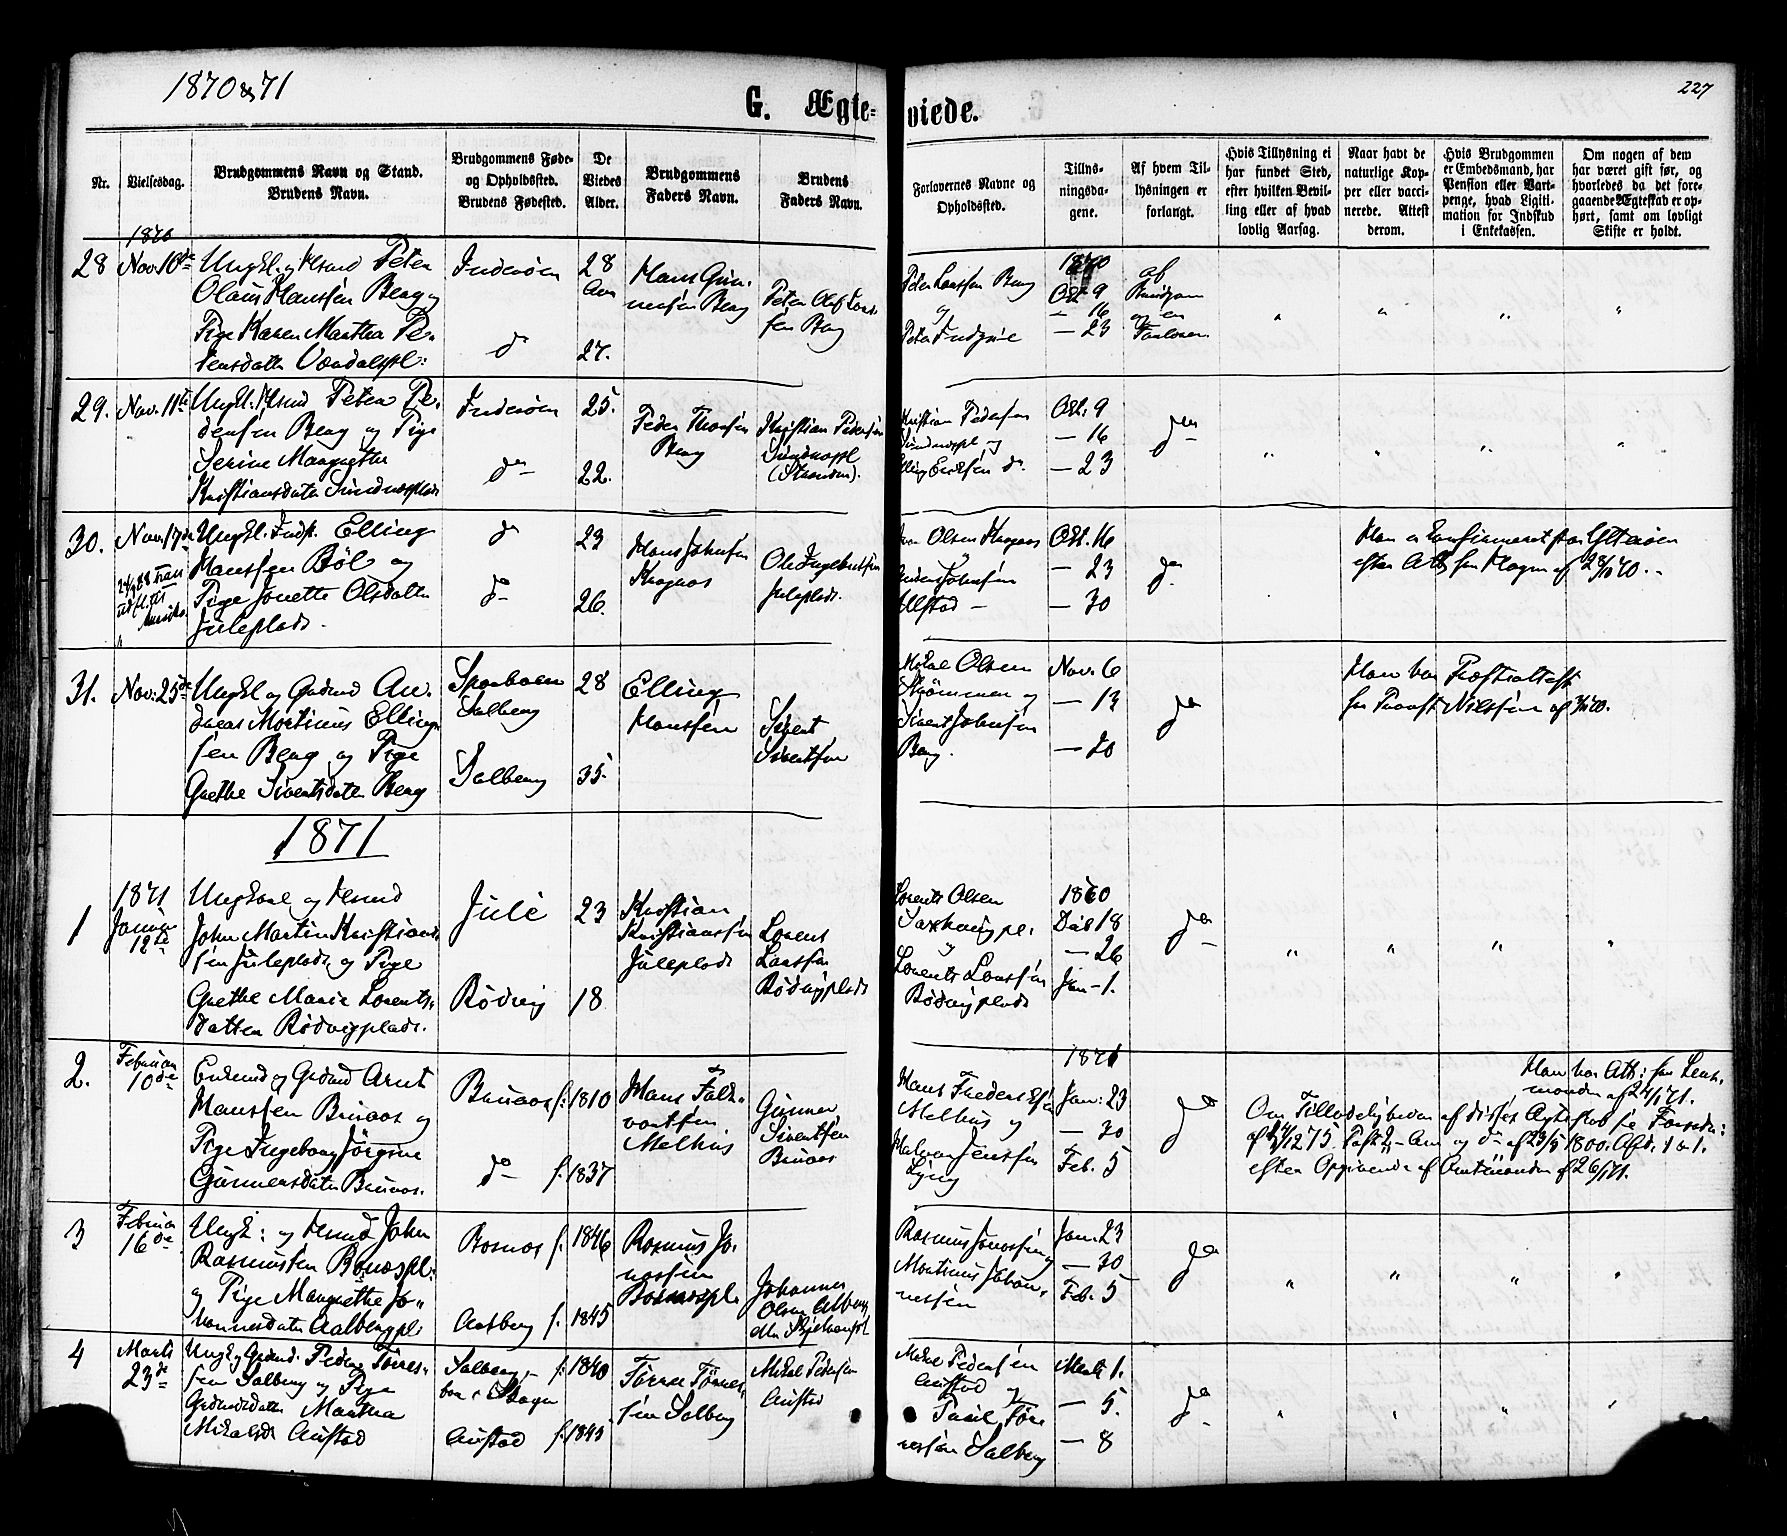 1870 & 71
227
G. Ægte-
viede.
Nr.
Vielsesdag.
Brudgommens Navn og Stand.
Brudens Navn.
Brudgommens Føde-
og Opholdssted.
Brudens Fødested.
De
Viedes
Alder.
Brudgommens
Faders Navn.
Brudens
Faders Navn.
Forlovernes Navne og
Opholdssted.
Tillys-
ningsda-
gene.
Af hvem Til-
lysningen er
forlangt.
Hvis Tillysning ei
har fundet Sted,
efter hvilken Bevil-
ling eller af hvad
lovlig Aarsag.
Naar havt de
naturlige Kop-
per eller vacci-
nerede. Attest
derom.
Hvis Brudgommen
er Embedsmand, har
Pension eller Vart-
penge, hvad Ligiti-
mation for Indskud
i Enkekassen.
Om nogen af dem
har været gift før, og
hvorledes da det fore-
gaaende Ægteskab er op-
hørt, samt om lovligt
Skifte er holdt.
1870
28
Nov. 10de
Ungkl. og Huusmd Peter
Olaus Hanssen Berg og
Pige Karen Martha Pe-
tersdatter Vændalspl:
Inderøen
do
28
Aar
27.
Hans Gun-
nersen Berg
Peter Olaf Lars-
sen Berg
Peter Larssen Berg
og
Peter
1870
Okt. 9
— 16
— 23
af
Brudgom
og en
Forlover.
29.
Nov. 11te
Ungkl. Huusmd Peter Pe-
dersen Berg og Pige
Serine Margrethe
Kristiansdatter Sundnæsplads
Inderøen
do
25.
22.
Peder Thorsen
Berg
Kristian Pedersen
Sundnæspl
(Stranden).
Kristian Pedersen
Sundnæspl og
Elling Eriksen do
Okt. 9
— 16
— 23
do
30.
Nov. 17de
Ungkl. Indst. Elling
Hanssen Bøl og
Pige Jonette Olsdatter
Juleplads.
do
do
23
26.
Hans Johnsen
Kragaas
Ole Ingebretsen
Juleplads.
Olsen Kragaas
og
Johnsen
Ulstad —
Okt. 16
— 23
— 30
do
Han er konfirmeret fra Ytterøen
efter Att. fra Klogeren af 28/10 70.
31.
Nov. 25de
Ungkl og Gaardmd An-
dreas Mortinus Elling-
sen Berg og Pige
Grethe Sivertsdatter Berg
Sparboen
Salberg
Salberg
28
35.
Elling
Hanssen
Sivert
Sivertsen
Mikal Olsen
Strømmen og
Sivert Johnsen
Berg.
Nov. 6
— 13
— 20
do
Han har Præsteattest
fra Provst Nilssen af
1871
1
1871
Januar
12te
Ungkarl og Huusmd
John Martin Kristian-
sen Juleplads og Pige
Grethe Marie Lorents-
datter Rødvigplads.
Jule
Rødvig
23
18
Kristian
Kristianssen
Juleplads
Lorents
Larssen
Rødvigplads
Lorents Olsen
Saxhaugpl.
og
Lorents Larssen
Rødvigplads
1870
Dcb 18
— 26
Jan — 1.
do
2.
Februar
10de
Enkemd og Gaardmd Arnt
Hanssen Bruaas og
Pige Ingeborg Jørgine
Gunnersdatter Bruaas.
Bruaas
do
f. 1810
f. 1837
Hans Falk-
vartsen
Melhus
Gunner
Sivertsen
Bruaas
Hans Frederiksen
Melhus og
Halvor Jenssen
Lyng
1871
Jan: 23
— 30
Feb. 5
do
Han har Att: fra Lens-
manden af 24/1 71.
Om Tilladelighed af dette Ægteskab se Forordn:
af 1275 Post 2 Arv og do af 23/5 1800. Afd. 1 a 1.
efter Opgivende af Amtmanden af 26/1 71.
3
Februar
16de
Ungk: og Huusmd John
Rasmussen Bosnæspl:
og Pige Margrethe Jo-
hannesdatter Aalbergpl:
Bosnæs
Aalberg
f. 1846
f. 1845
Rasmus Jo-
nassen
Bosnæspl.
Johannes
Olsen Aalberg
eller Skjelvansvl
Rasmus Jonassen og
Mortinus Johan-
nessen
Jan: 23
— 30
Feb. 5
do
4
Marts
23de
Ungk. og Gaardmd. Peder Tørres-
sen Salberg og Pige
Gaardmdsdatter Martha
Mikalsd: Austad
Salberg
Austad
f. 1840
f. 1845
Tørres Tørres-
sen Salberg
Mikal Pedersen
Austad
Mikal Pedersen
Austad og
Paul Tør-
ressen Salberg
Marts 1.
— 5.
— 8
do